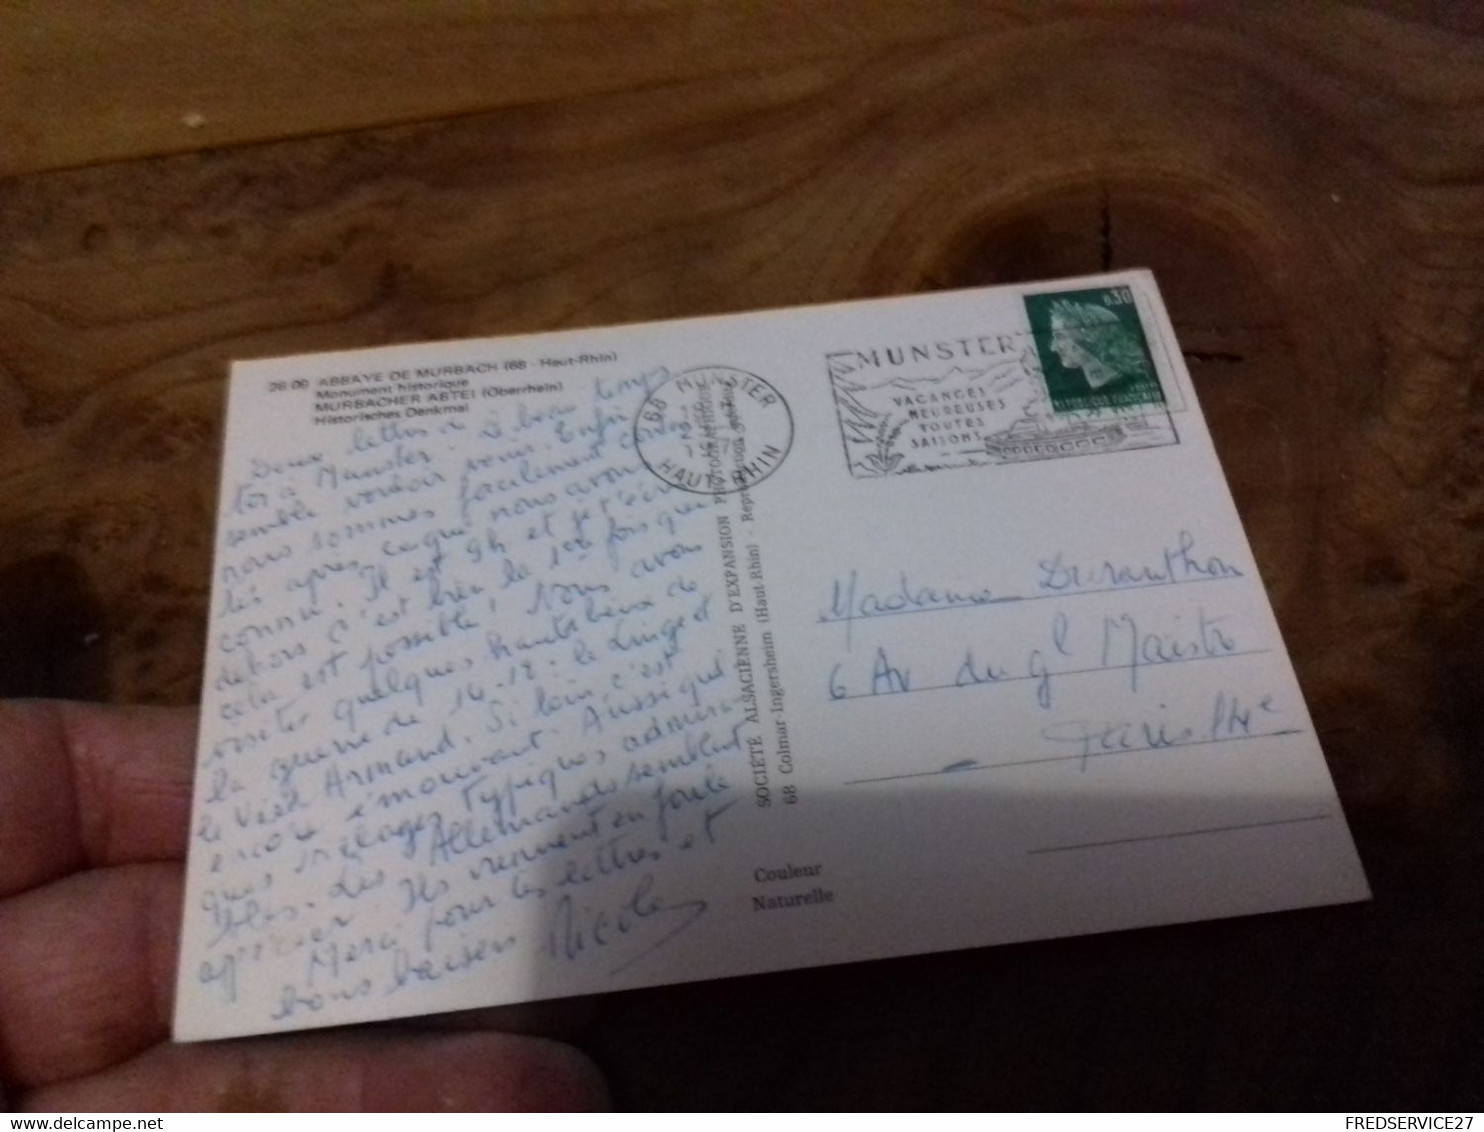 26 06 ABBAYE DE MURBACH (68 - Haut-Rhin)
Monument historique
MURBACHER ABTEI (Oberrhein)
Historisches Denkmal
Deux lettres à beau temps
à Munster. Le
semble vouloir venir. Enfin
nous sommes facilement
après ce que nous avons
connu. Il est 9h et je t'écris
dehors c'est bien la 1ère fois que
cela est possible! Nous avons
visité quelques hauts lieux de
la guerre de 14-18: le Linge et
le Vieil Armand. Si loin c'est
encore émouvant. Aussi
quelques villages typiques admirables
. Les Allemands semblent
apprécier. Ils viennent en foule
Merci pour les lettres et
bons baisers Nicole
68 MUNSTER
HAUT-RHIN
MUNSTER
VACANCES
HEUREUSES
TOUTES
SAISONS
0,30
SOCIÉTÉ ALSACIENNE D'EXPANSION PHOTOGRAPHIQUE
68 Colmar-Ingersheim (Haut-Rhin) - Reproduction
Couleur
Naturelle
Madame Duranthon
6 Av du Gl Maistre
Paris 14e
FREDSERVICE27